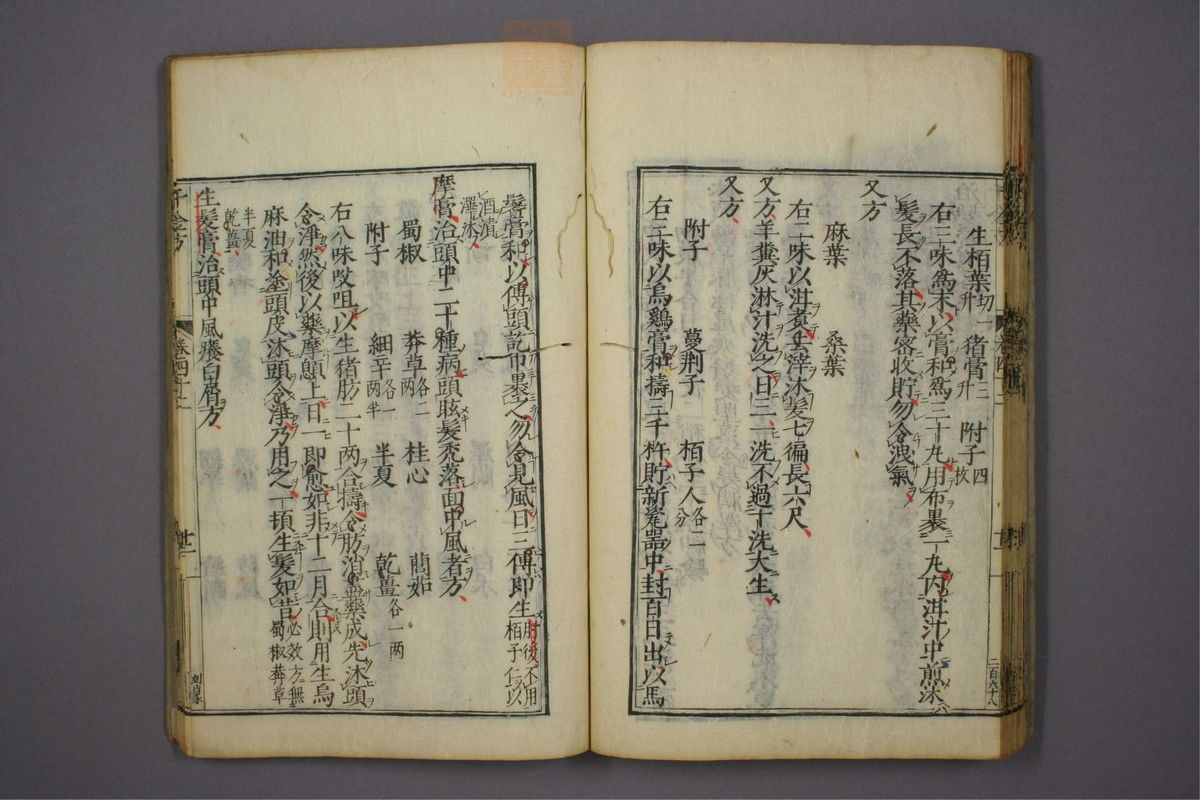 生栢葉切一升 猪膏三升 附子四枚
右三味為末以膏和為三十丸用布裹一丸内泔汁中煎沐
髮長不落其藥密收貯勿令洩氣
又方
麻葉 桑葉
右二味以泔煮去滓沐髮七徧長六尺
又方羊糞灰淋汁洗之日三一洗不過十洗大生
又方
附子 蔓荆子 栢子人各二分
右三味以烏鷄膏和擣三千杵貯新瓷器中封百日出以馬
二百六十八
鬐膏和以傅頭訖巾裹之勿令見風日三傅即生肘後不用栢子仁以
酒漬澤沐
摩膏治頭中二十種病頭眩髮禿落面中風者方
蜀椒 莽草各二两 桂心 䕡茹
附子 細辛各一两半 半夏 乾薑各一两
右八味㕮咀以生猪肪二十两合擣令肪消盡藥成先沐頭
令淨然後以藥摩顖上日一即愈如非十二月合則用生烏
麻油和塗頭皮沐頭令淨乃用之一頓生髮如昔必效方無蜀椒莽草
半夏乾薑
生髮膏治頭中風癢白屑方
千金方 卷四十二 廿二